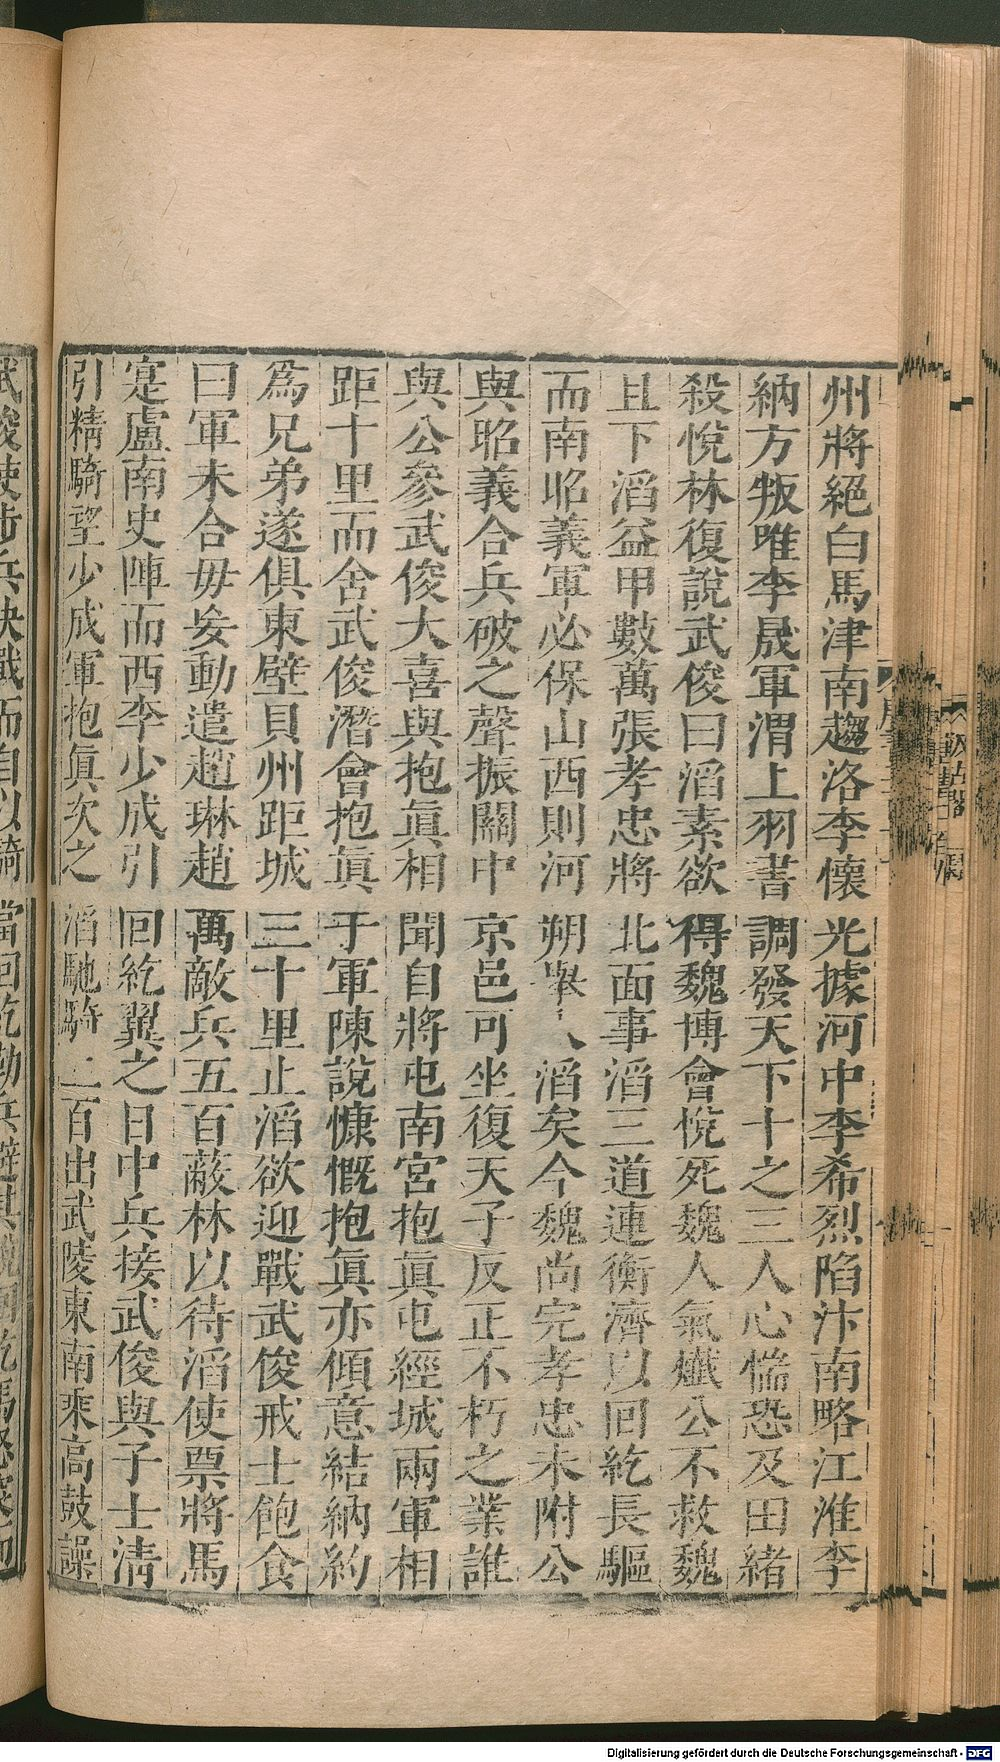 州將絕白馬津南趨洛李懷光據河中李希烈陷汴南略江淮李
納方叛唯李晟軍渭上羽書調發天下十之三人心惴恐及田緒
殺悅林復說武俊曰滔素欲得魏博會悅死魏人氣熸公不救魏
且下滔益甲數萬張孝忠將北面事滔三道連衡濟以回紇長驅
而南昭義軍必保山西則河朔舉入滔矣今魏尚完孝忠未附公
與昭義合兵破之聲振關中京邑可坐復天子反正不朽之業誰
與公參武俊大喜與抱眞相聞自將屯南宮抱眞屯經城兩軍相
距十里而舍武俊潛會抱眞于軍陳說慷慨抱眞亦傾意結納約
爲兄弟遂俱東壁貝州距城三十里止滔欲迎戰武俊戒士飽食
曰軍未合毋妄動遣趙琳趙萬敵兵五百蔽林以待滔使票將馬
寔盧南史陣而西李少成引回紇翼之日中兵接武俊與子士淸
引精騎望少成軍抱眞次之滔馳騎二百出武陵東南乘高鼓譟
武俊使步兵決戰而自以騎當回紇勒兵避其銳回紇馬怒突
Digitalisierung gefördert durch die Deutsche Forschungsgemeinschaft - DFG